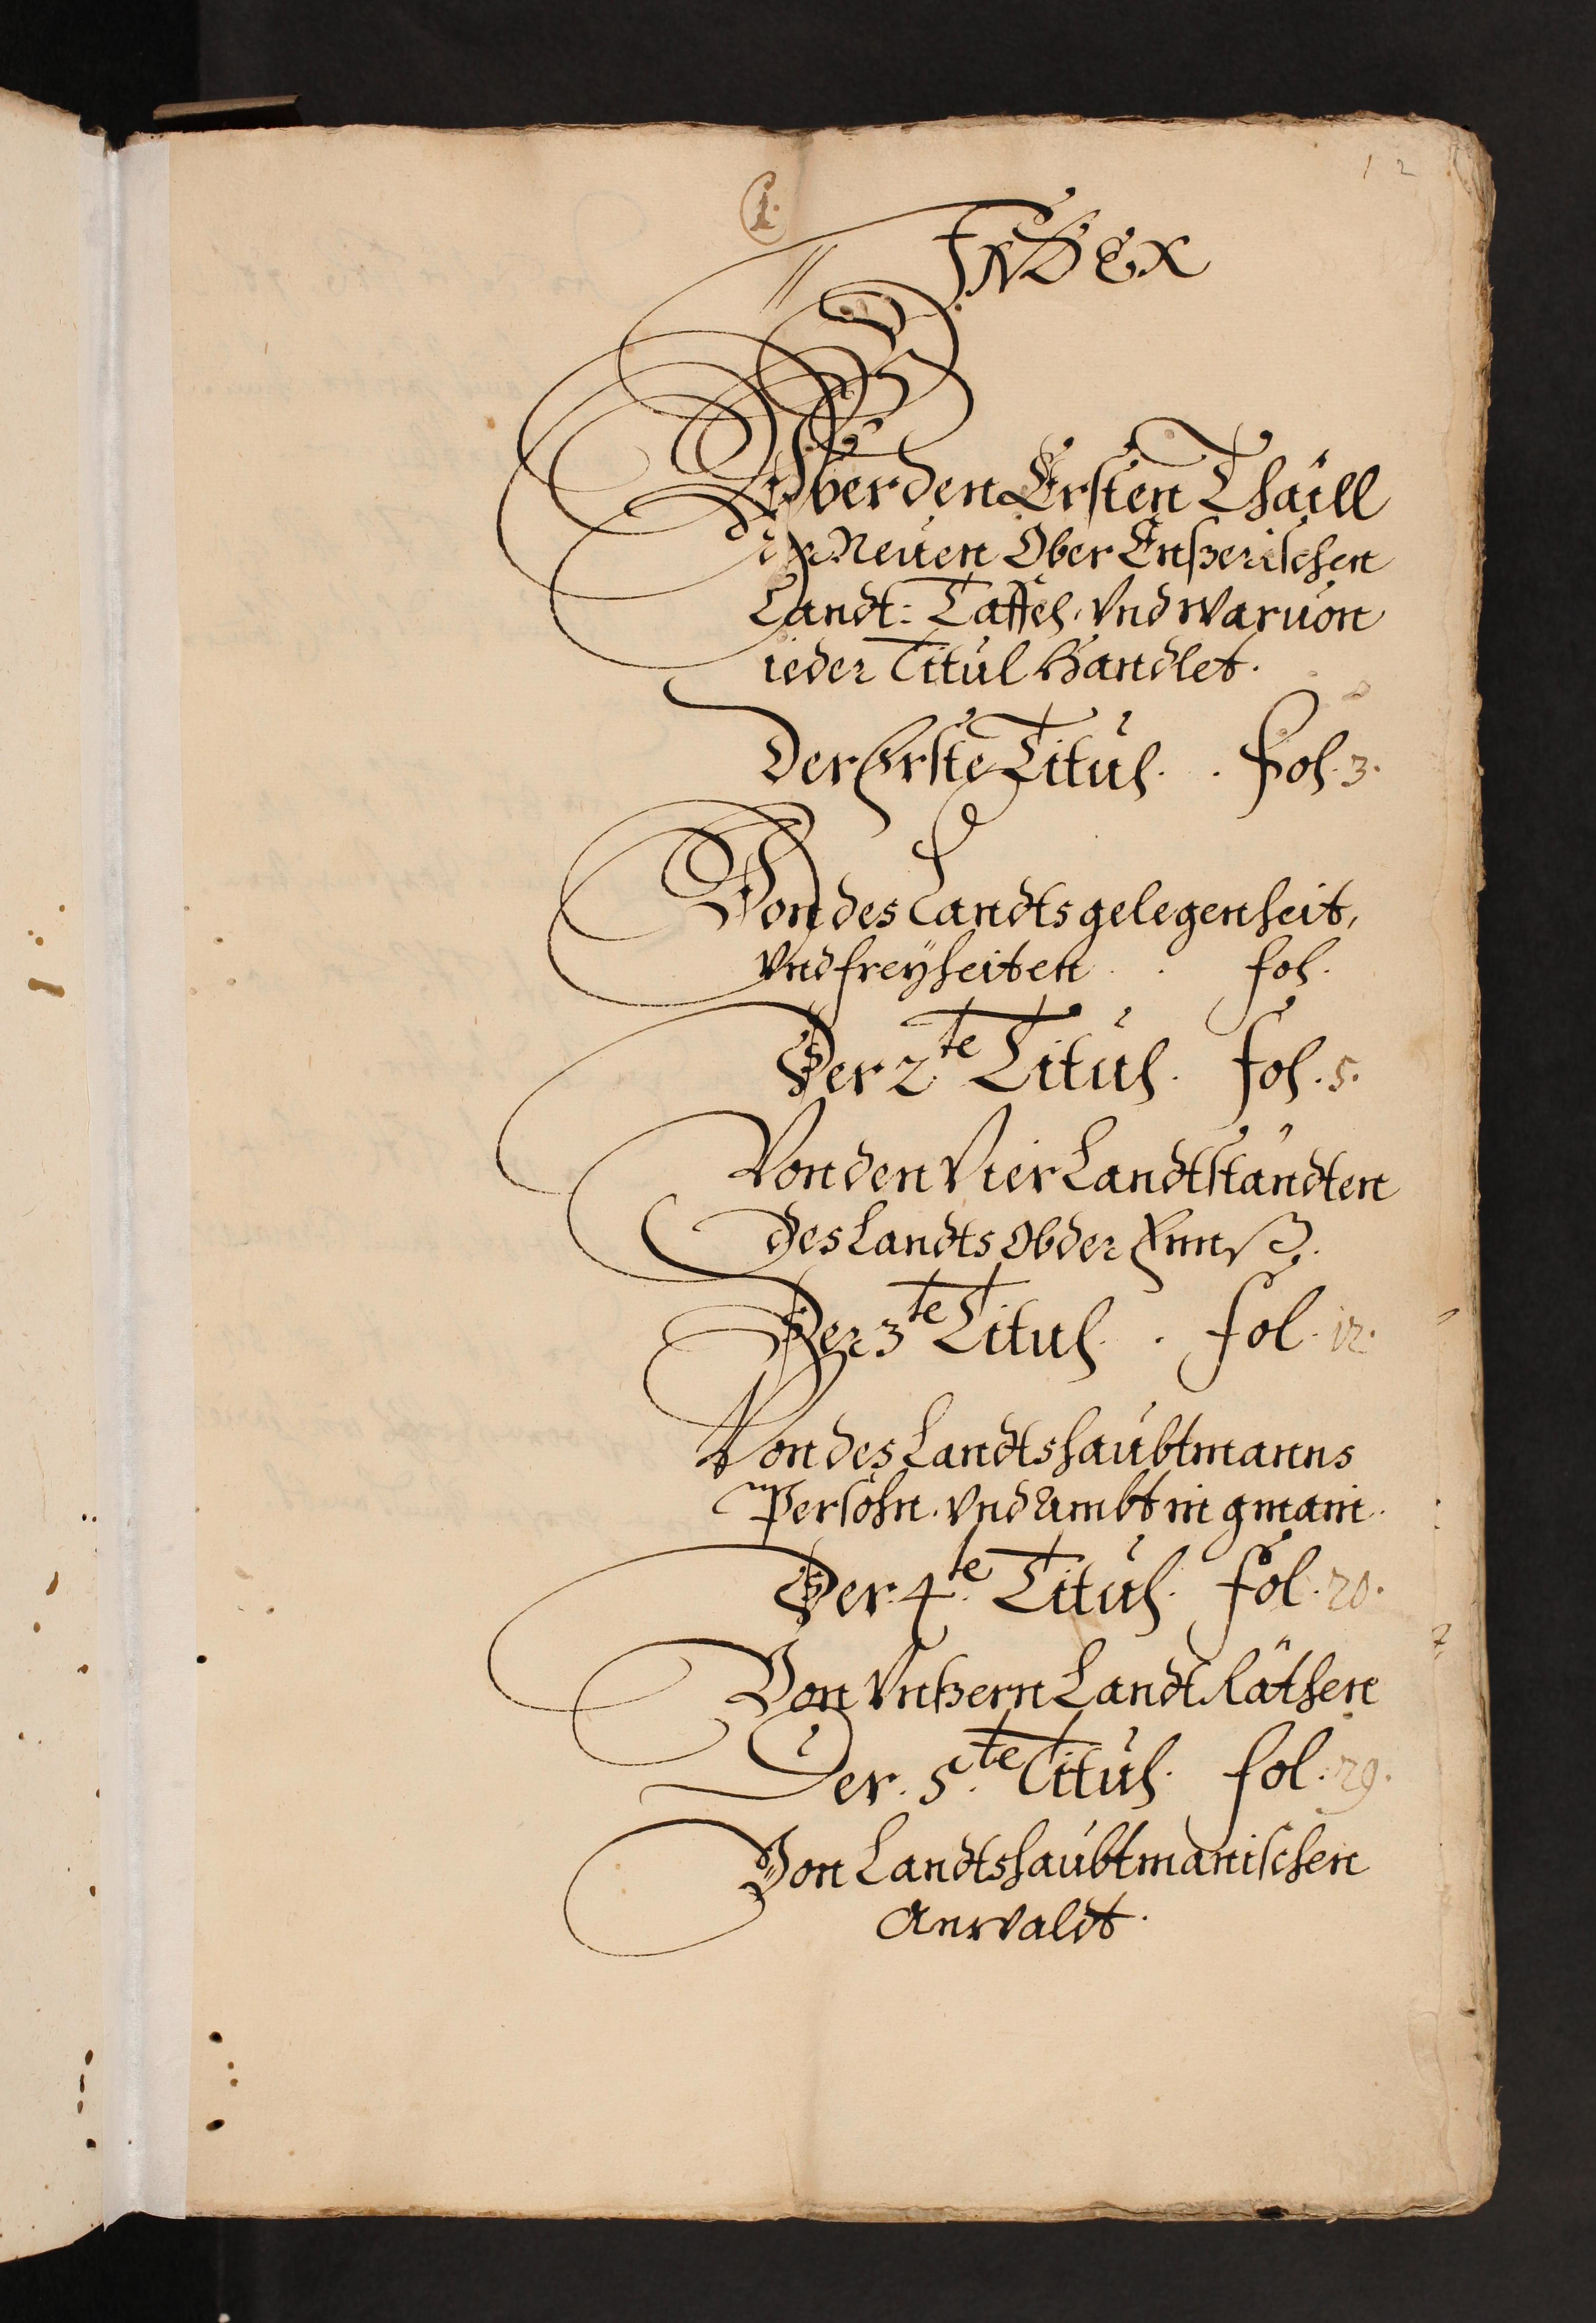 1.
1 2
INDEX
Vber den Ersten Thaill
der Neuen Ober Enßerischen
Landt: Taffel, Vnd waruon
ieder Titul Handlet.
Der Erste Titul. . Fol. 3.
Von des Landts gelegenheit,
Vnd freyheiten . . fol.
Der 2.te Titul. fol. 5.
Von den Vier Landtständten
des Landts Ob der Ennß.
Der 3te Titul. . fol. 12.
Von des Landtshaubtmanns
Persohn. Vnd Ambt in gmain.
Der 4.te Titul. fol. 20.
Von Vnßern Landt Räthen
Der. 5.te Titul. fol. 29.
Von Landtshaubtmanischen
Anwaldt.